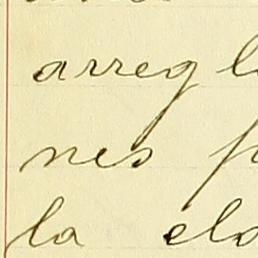 arregl
nes f
la ela